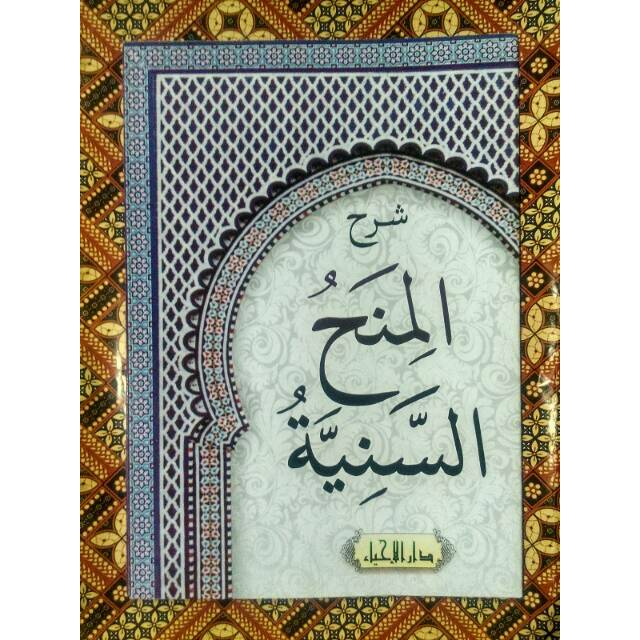 شرح
المِنَحُ
السَّنِيَّةُ
دار الإحياء